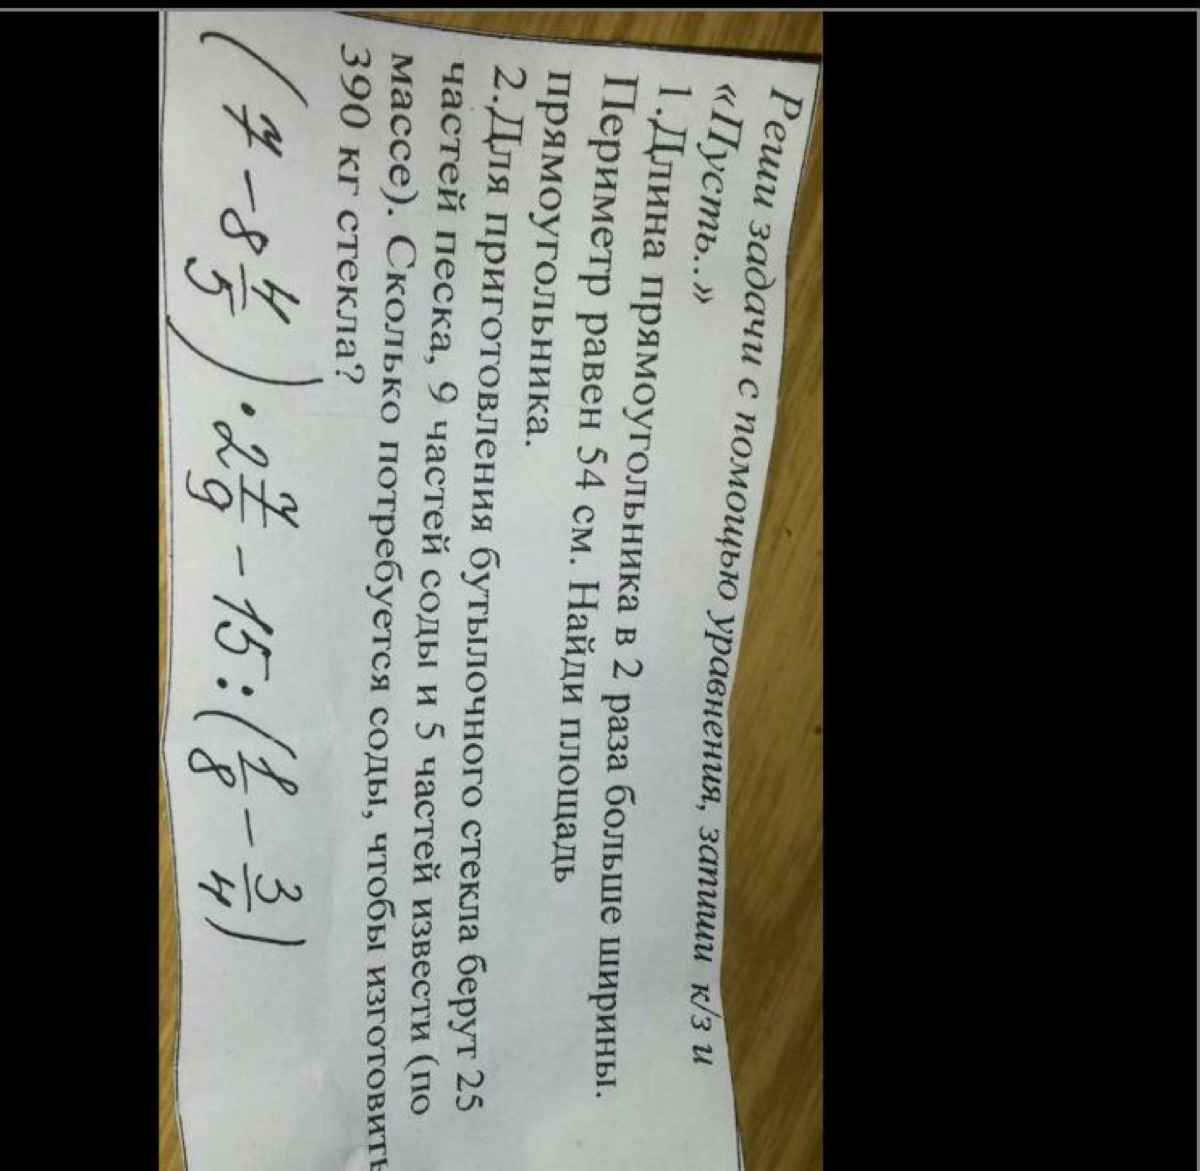 Реши задачи с помощью уравнения, запиши к/з и
«Пусть..»
1.Длина прямоугольника в 2 раза больше ширины.
Периметр равен 54 см. Найди площадь
прямоугольника.
2.Для приготовления бутылочного стекла берут 25
частей песка, 9 частей соды и 5 частей извести (по
массе). Сколько потребуется соды, чтобы изготовить
390 кг стекла?
(7 - 8 4/5) · 2 7/9 - 15 : (1/8 - 3/4)